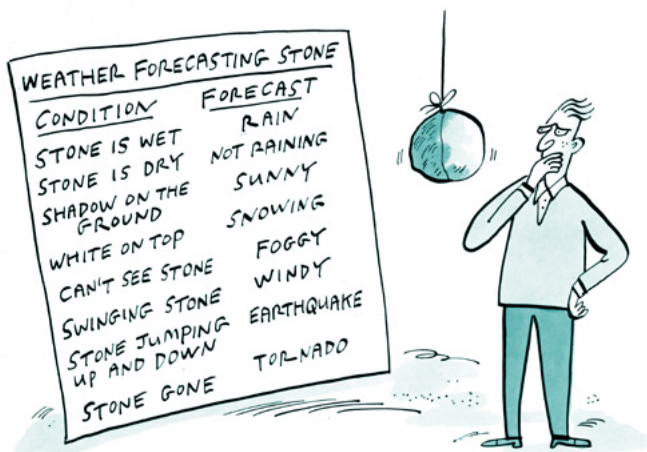 WEATHER FORECASTING STONE
CONDITION FORECAST
STONE IS WET RAIN
STONE IS DRY NOT RAINING
SHADOW ON THE
GROUND SUNNY
WHITE ON TOP SNOWING
CAN'T SEE STONE FOGGY
SWINGING STONE WINDY
STONE JUMPING
UP AND DOWN EARTHQUAKE
STONE GONE TORNADO